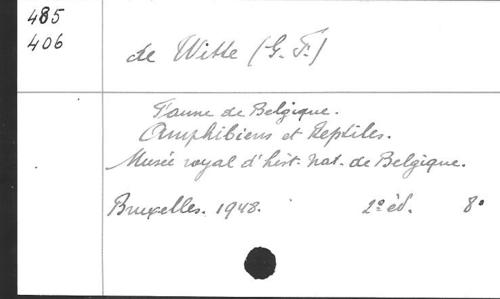 485
406
de Witte (G. F.)
Faune de Belgique.
Amphibiens et Reptiles.
Musée royal d'hist. nat. de Belgique.
Bruxelles. 1948. 2º éd. 8º